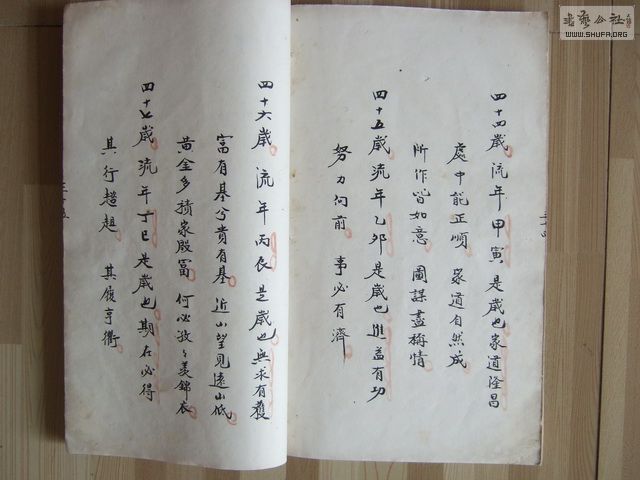 四十四歲 流年甲寅 是歲也家道隆昌
處中能正順 家道自然成
所作皆如意 圖謀盡稱情
四十五歲 流年乙卯 是歲也進益有功
努力向前 事必有濟
四十六歲 流年丙辰 是歲也無求有獲
富有基兮貴有基 近山望見遠山低
黃金多積家殷富 何必孜々羡錦衣
四十七歲 流年丁巳 是歲也期在必得
其行趦趄 其履亨衢
WWW.SHUFA.ORG